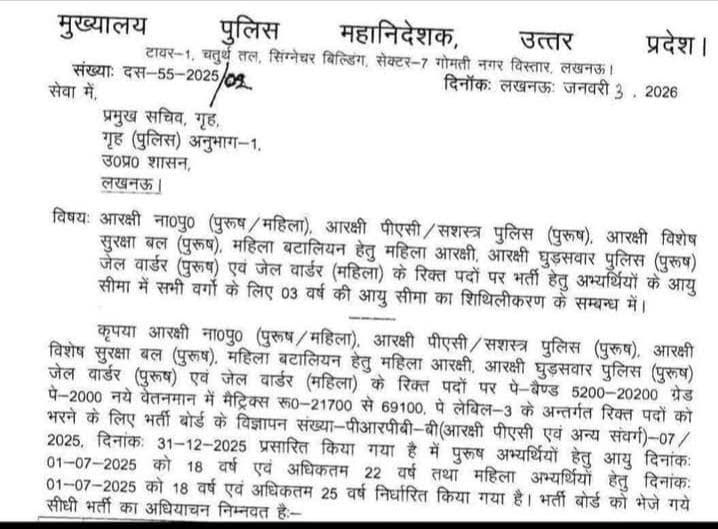 मुख्यालय पुलिस महानिदेशक, उत्तर प्रदेश।
टावर-1, चतुर्थ तल, सिग्नेचर बिल्डिंग, सेक्टर-7 गोमती नगर विस्तार, लखनऊ।
संख्याः दस-55-2025/02 दिनाँकः लखनऊः जनवरी 3 . 2026
सेवा में,
प्रमुख सचिव, गृह,
गृह (पुलिस) अनुभाग-1,
उ0प्र0 शासन,
लखनऊ।
विषयः आरक्षी ना0पु0 (पुरूष/महिला), आरक्षी पीएसी/सशस्त्र पुलिस (पुरूष), आरक्षी विशेष
सुरक्षा बल (पुरूष), महिला बटालियन हेतु महिला आरक्षी, आरक्षी घुड़सवार पुलिस (पुरूष)
जेल वार्डर (पुरूष) एवं जेल वार्डर (महिला) के रिक्त पदों पर भर्ती हेतु अभ्यर्थियों के आयु
सीमा में सभी वर्गो के लिए 03 वर्ष की आयु सीमा का शिथिलीकरण के सम्बन्ध में।
कृपया आरक्षी ना0पु0 (पुरूष/महिला), आरक्षी पीएसी/सशस्त्र पुलिस (पुरूष), आरक्षी
विशेष सुरक्षा बल (पुरूष), महिला बटालियन हेतु महिला आरक्षी, आरक्षी घुड़सवार पुलिस (पुरूष)
जेल वार्डर (पुरूष) एवं जेल वार्डर (महिला) के रिक्त पदों पर पे-बैण्ड 5200-20200 ग्रेड
पे-2000 नये वेतनमान में मैट्रिक्स रू0-21700 से 69100, पे लेबिल-3 के अन्तर्गत रिक्त पदों को
भरने के लिए भर्ती बोर्ड के विज्ञापन संख्या-पीआरपीबी-बी(आरक्षी पीएसी एवं अन्य संवर्ग)-07/
2025, दिनांकः 31-12-2025 प्रसारित किया गया है में पुरूष अभ्यर्थियों हेतु आयु दिनांकः
01-07-2025 को 18 वर्ष एवं अधिकतम 22 वर्ष तथा महिला अभ्यर्थियों हेतु दिनांकः
01-07-2025 को 18 वर्ष एवं अधिकतम 25 वर्ष निर्धारित किया गया है। भर्ती बोर्ड को भेजे गये
सीधी भर्ती का अधियाचन निम्नवत हैः-